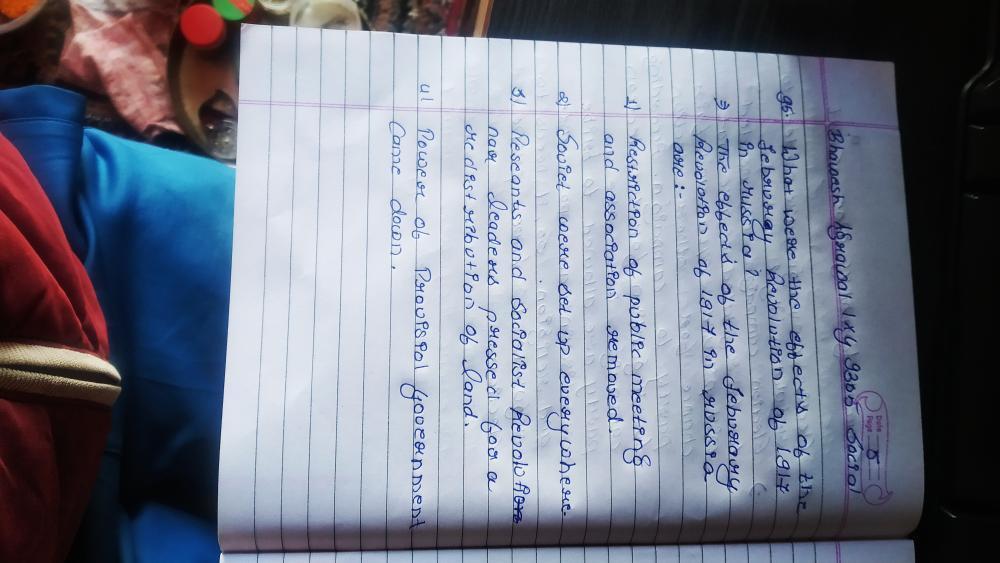 Date
Page 5
Bhavesh Agrawal 1xy 9305 Social
Q5. What were the effects of the
February Revolution of 1917
in russia?
→ The effects of the february
Revolution of 1917 in russia
are:-
1) Restriction of public meeting
and association removed.
2) Soviet were set up everywhere.
3) Peseants and Socialist Revolution
nar leaders pressed for a
redistribution of land.
4) Power of Provisial government
Came down.